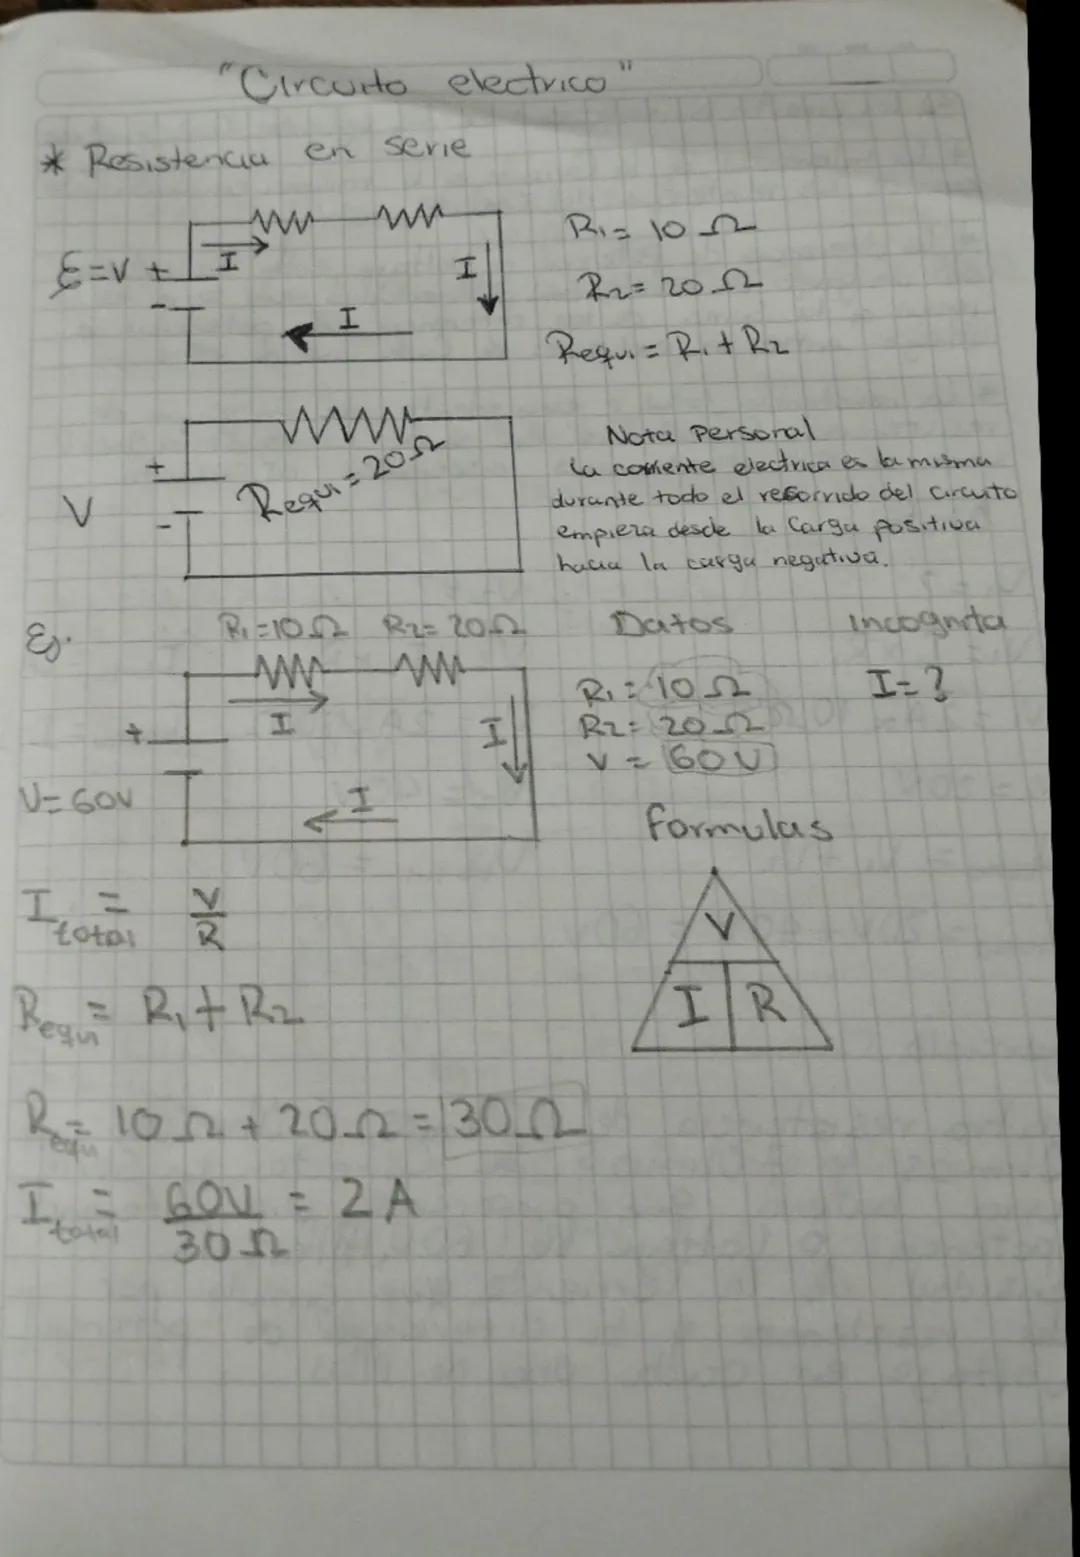 "Circuito electrico"
* Resistencia en serie
ε=V + I I I -
R1= 10 Ω
R2= 20 Ω
Requi = R1 + R2
V + - Requi = 20Ω
Nota Personal
la corriente electrica es la misma
durante todo el recorrido del circuito
empieza desde la Carga positiva
hacia la carga negativa.
Ej.
R1=10Ω R2= 20Ω
+ I I I
V= 60V
Datos
R1 = 10 Ω
R2= 20 Ω
V = 60 V
incognita
I= ?
formulas
V
I R
I total = V/R
Requi = R1 + R2
Requi = 10 Ω + 20 Ω = 30 Ω
I total = 60V/30 Ω = 2 A